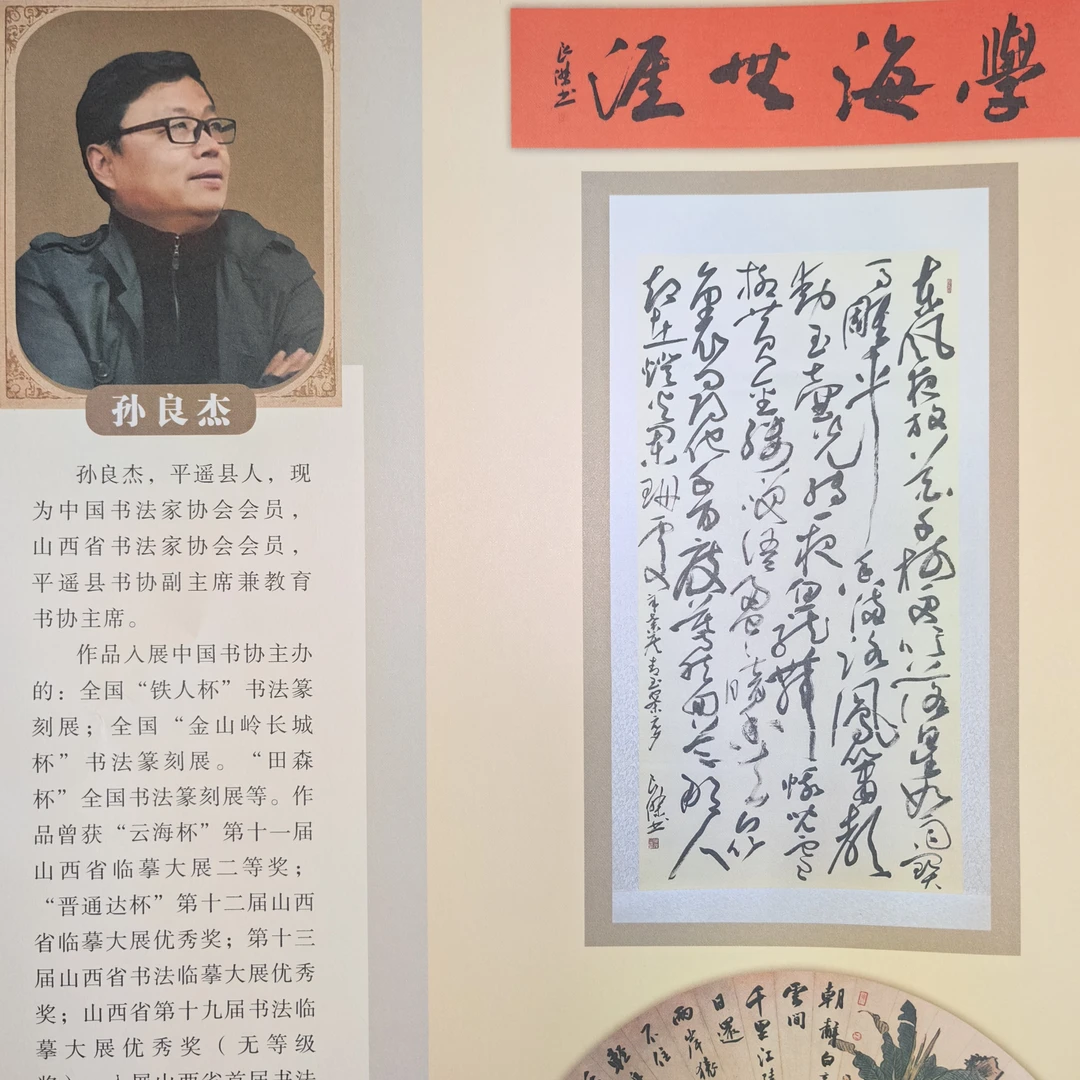 學海無涯
良傑书
孙良杰
孙良杰，平遥县人，现
为中国书法家协会会员，
山西省书法家协会会员，
平遥县书协副主席兼教育
书协主席。
作品入展中国书协主办
的：全国“铁人杯”书法篆
刻展；全国“金山岭长城
杯”书法篆刻展。“田森
杯”全国书法篆刻展等。作
品曾获“云海杯”第十一届
山西省临摹大展二等奖；
“晋通达杯”第十二届山西
省临摹大展优秀奖；第十三
届山西省书法临摹大展优秀
奖；山西省第十九届书法临
摹大展优秀奖（无等级
東风夜放花千樹更吹落星如雨寶
马雕車香滿路鳳簫聲
動玉壺光轉一夜魚龍舞蛾兒雪
柳黃金縷笑語盈盈暗香去
眾裏尋他千百度驀然回首那人
却在燈火闌珊處
辛棄疾青玉案元夕
良傑书
朝辭白
雲間
千里江陵
日還
兩岸猿
不住
輕